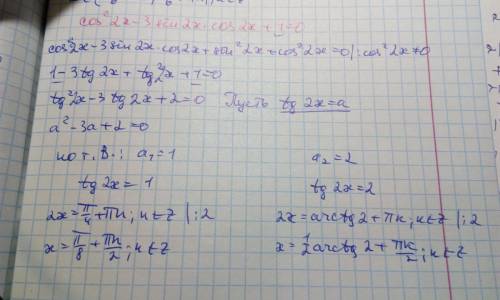 cos²2x-3sin2x·cos2x+1=0
cos²2x-3sin2x·cos2x+sin²2x+cos²2x=0|:cos²2x≠0
1-3tg2x+tg²2x+1=0
tg²2x-3tg2x+2=0 Пусть tg2x=a
a²-3a+2=0
по т.В.: a₁=1 a₂=2
tg2x=1 tg2x=2
2x=π/4+πk; k∈Z |:2 2x=arctg2+πk; k∈Z |:2
x=π/8+πk/2; k∈Z x=1/2arctg2+πk/2; k∈Z